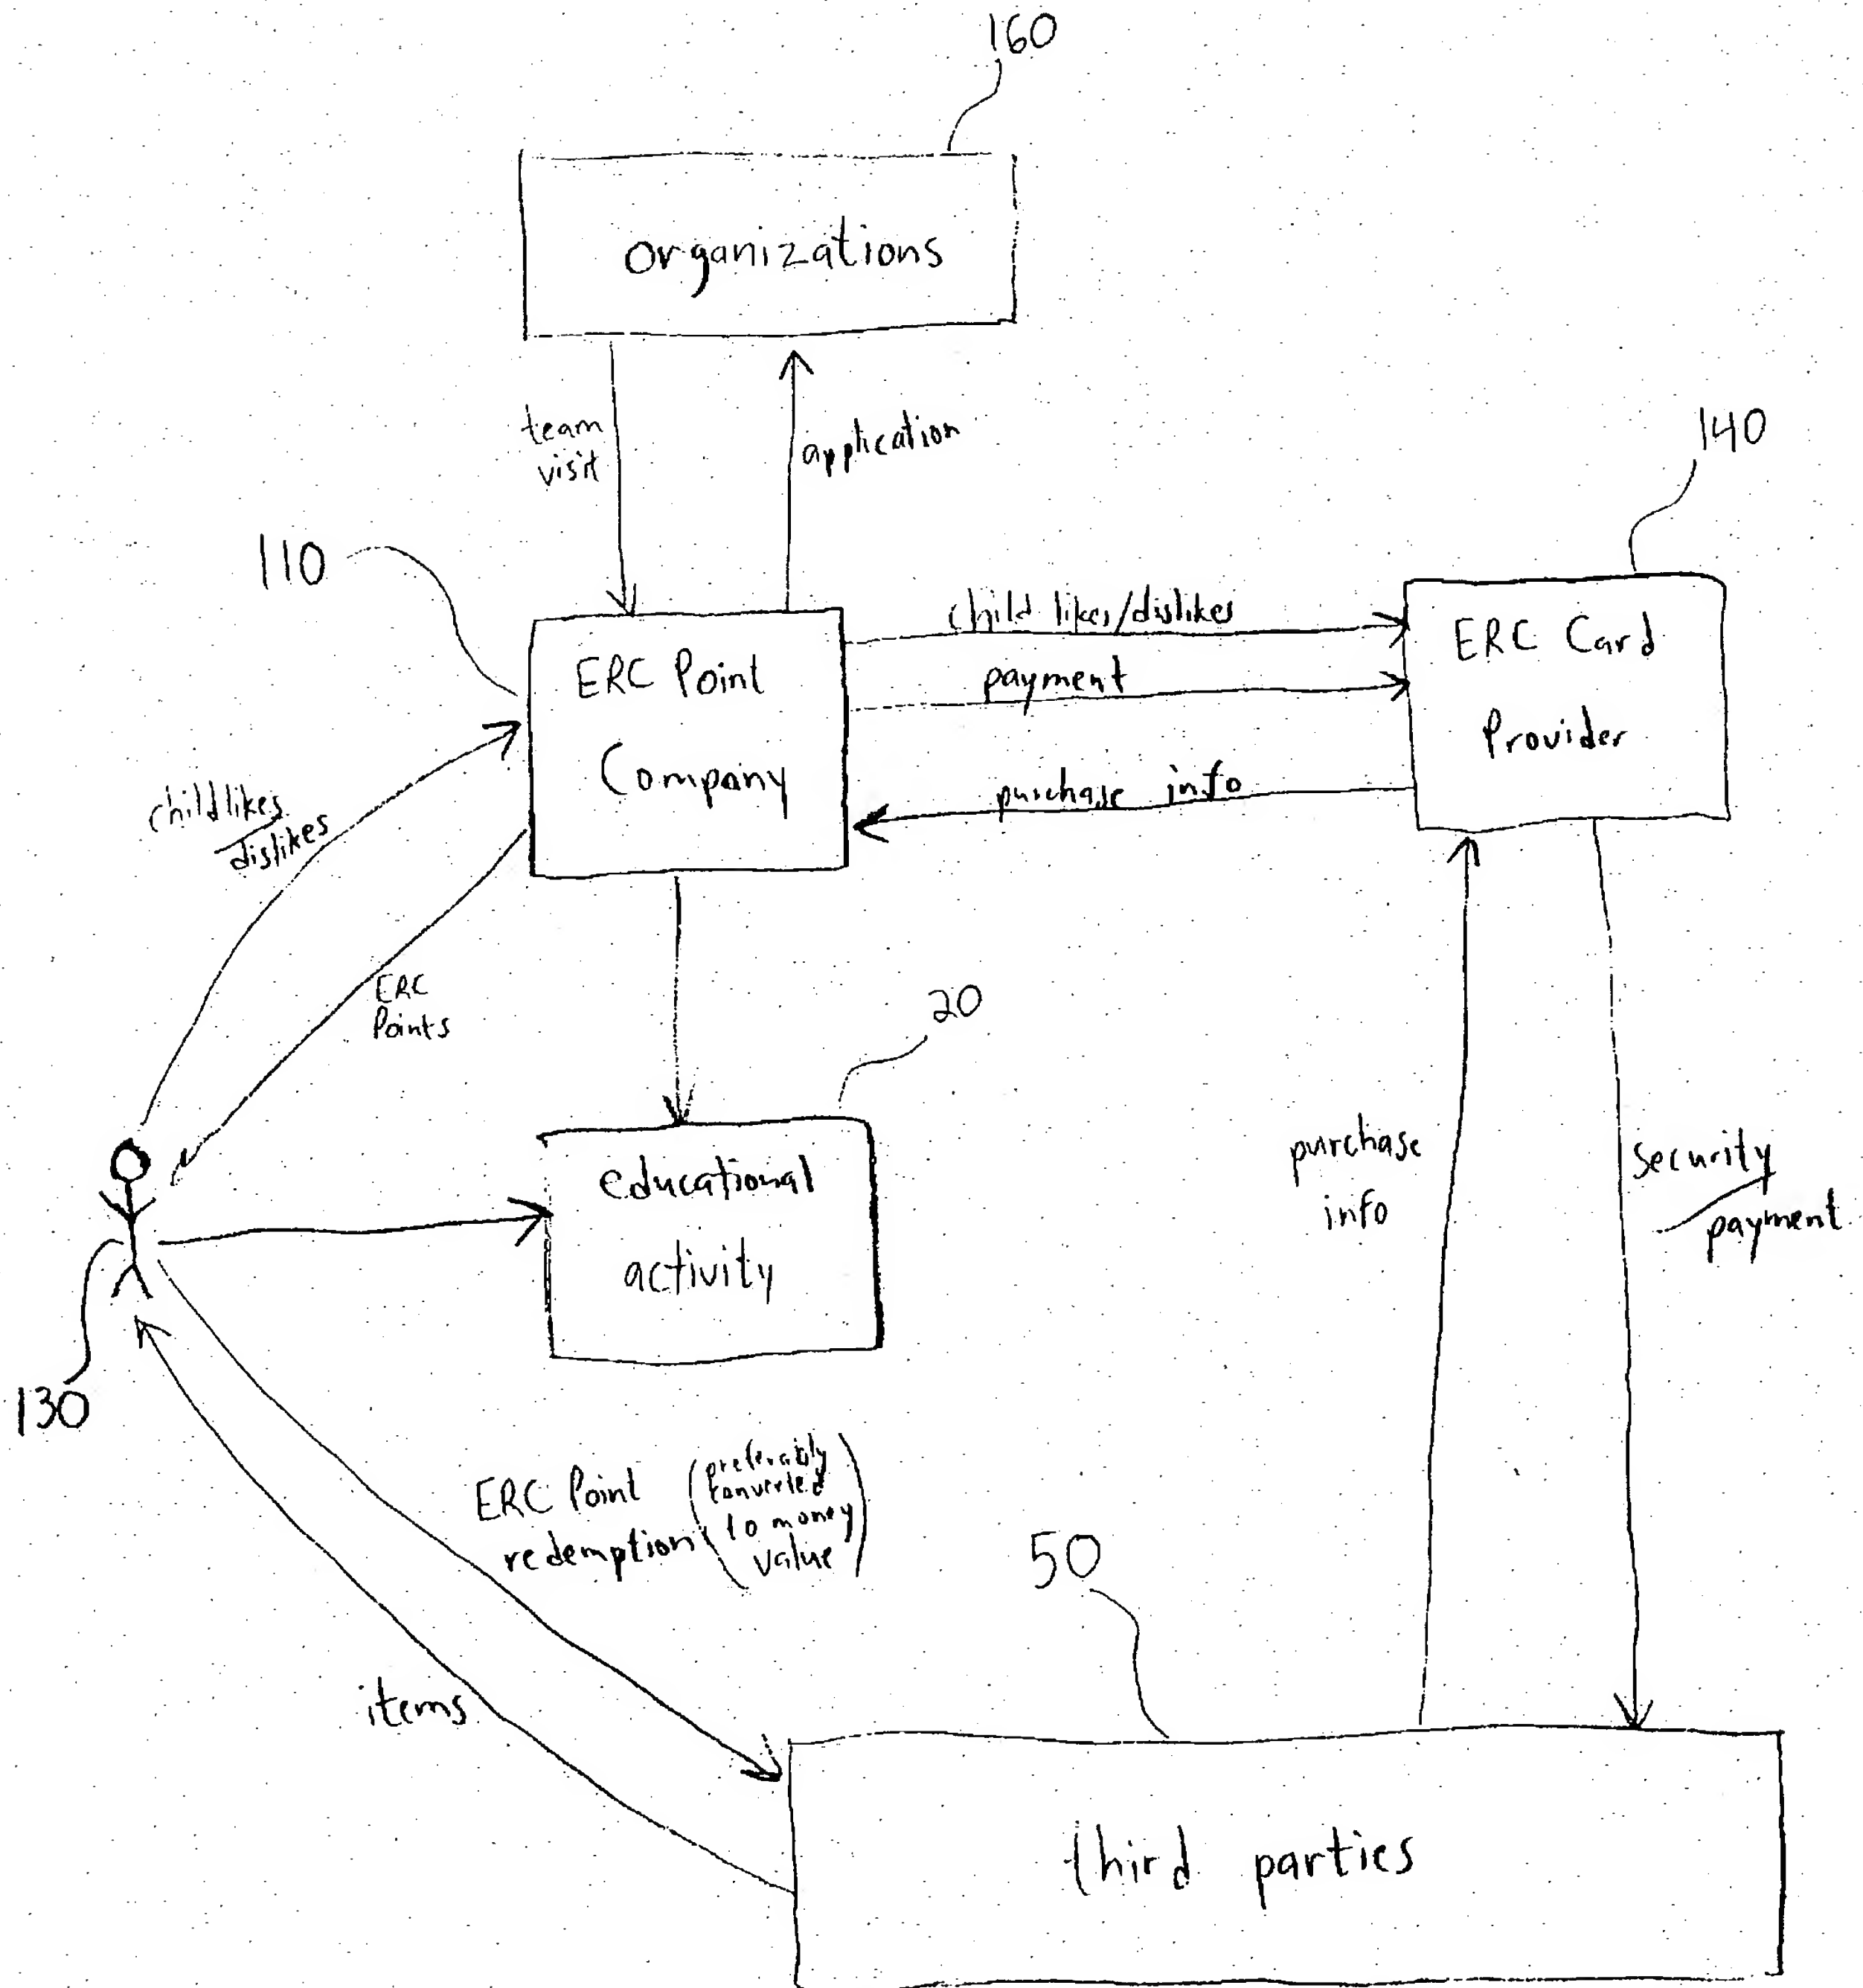 160
organizations
team
visit
application
140
110
child likes/dislikes
ERC Point
Company
payment
purchase info
ERC Card
Provider
child likes
/dislikes
ERC
Points
20
educational
activity
purchase
info
security
/payment
130
ERC Point
redemption
(preferably
converted
to money
value)
50
items
third parties